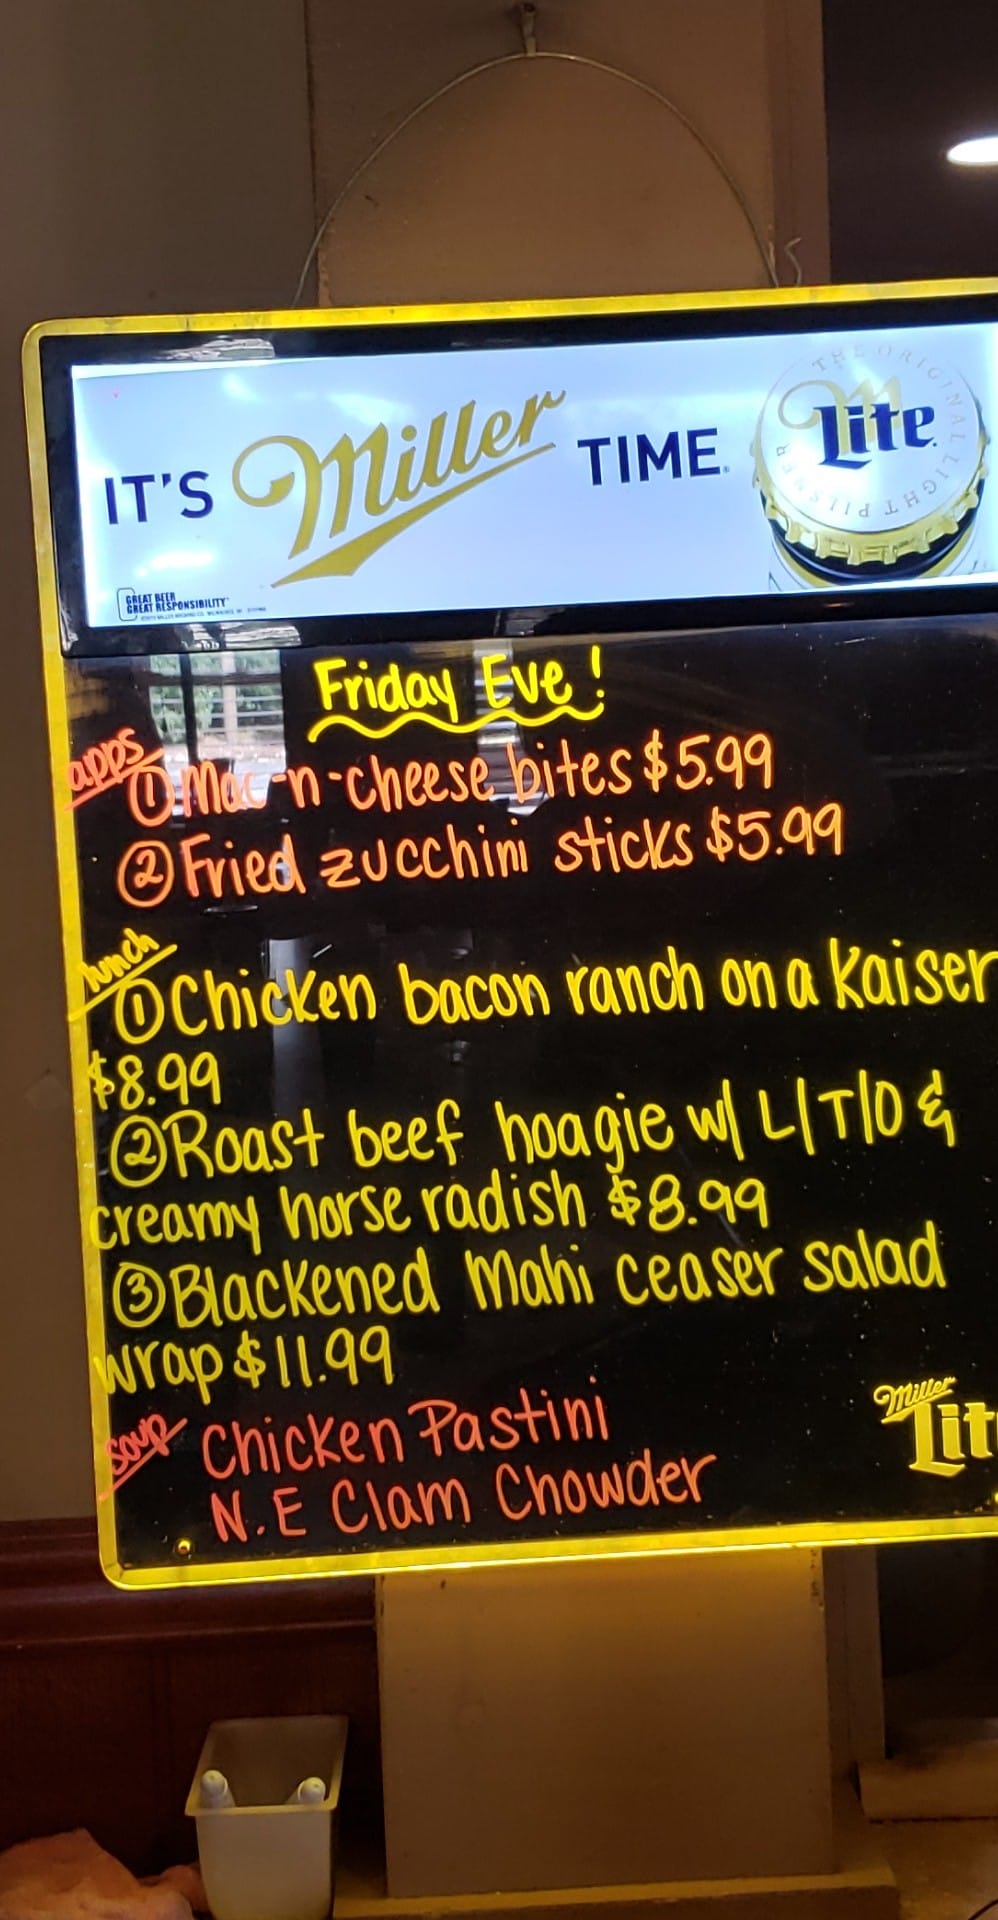 IT'S Miller TIME.
THE ORIGINAL LIGHT PILSNER
Lite
GREAT BEER
GREAT RESPONSIBILITY
Friday Eve!
apps
① Mac-n-cheese bites $5.99
② Fried zucchini sticks $5.99
lunch
① Chicken bacon ranch on a Kaiser
$8.99
② Roast beef hoagie w/ L/T/O &
creamy horse radish $8.99
③ Blackened Mahi ceaser salad
wrap $11.99
soup
Chicken Pastini
N.E Clam Chowder
Miller
Lit